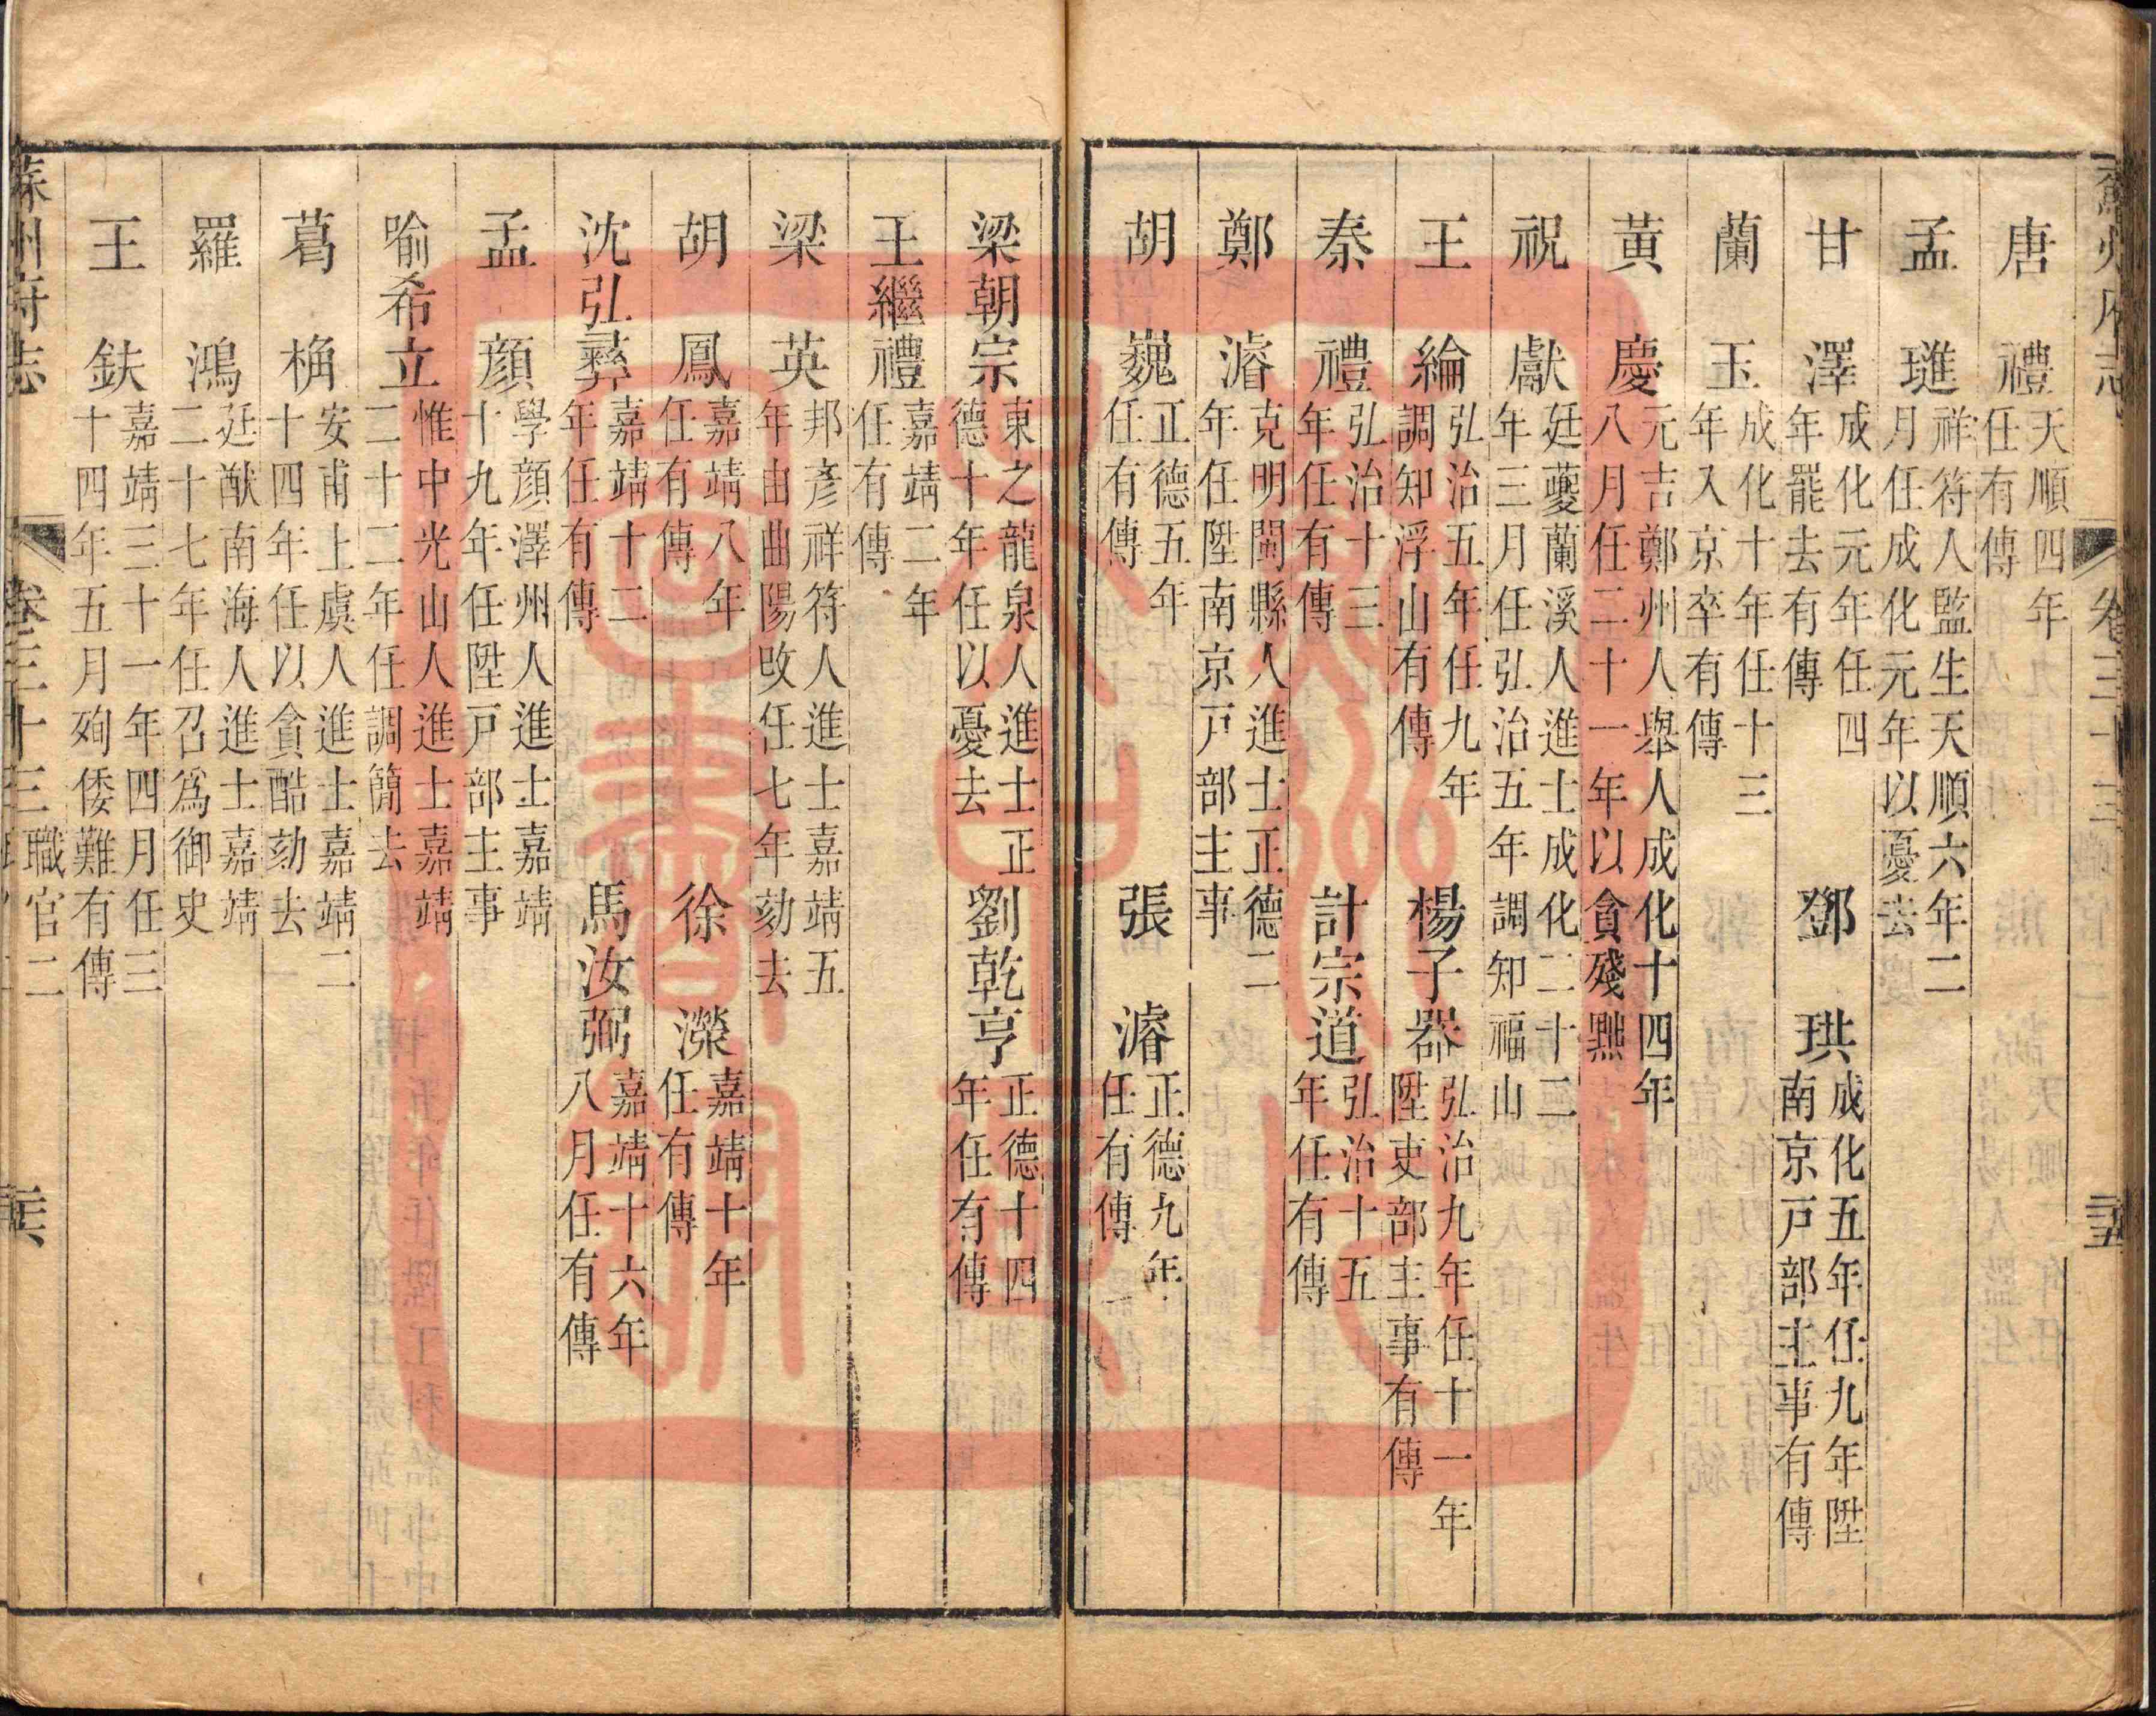 蘇州府志 卷三十三 二十五
唐禮 天順四年任有傳
孟璡 祥符人監生天順六年二月任成化元年以憂去
甘澤 成化元年任四年罷去有傳 鄧珙 成化五年任九年陞南京戸部主事有傳
蘭玉 成化十年任十三年入京卒有傳
黃慶 元吉鄭州人舉人成化十四年八月任二十一年以貪殘黜
祝獻 廷夔蘭溪人進士成化二十二年三月任弘治五年調知福山
王綸 弘治五年任九年調知浮山有傳 楊子器 弘治九年任十一年陞吏部主事有傳
秦禮 弘治十三年任有傳 計宗道 弘治十五年任有傳
鄭濬 克明閩縣人進士正德二年任陞南京戸部主事
胡巍 正德五年任有傳 張濬 正德九年任有傳
梁朝宗 東之龍泉人進士正德十年任以憂去 劉乾亨 正德十四年任有傳
王繼禮 嘉靖二年任有傳
梁英 邦彥祥符人進士嘉靖五年由曲陽攺任七年劾去
胡鳳 嘉靖八年任有傳 徐濚 嘉靖十年任有傳
沈弘彝 嘉靖十二年任有傳 馬汝弼 嘉靖十六年八月任有傳
孟顏 學顏澤州人進士嘉靖十九年任陞戸部主事
喻希立 惟中光山人進士嘉靖二十二年任調簡去
葛桷 安甫上虞人進士嘉靖二十四年任以貪酷劾去
羅鴻 廷猷南海人進士嘉靖二十七年任召爲御史
王鈇 嘉靖三十一年四月任三十四年五月殉倭難有傳
蘇州府志 卷三十三 職官二 二十六